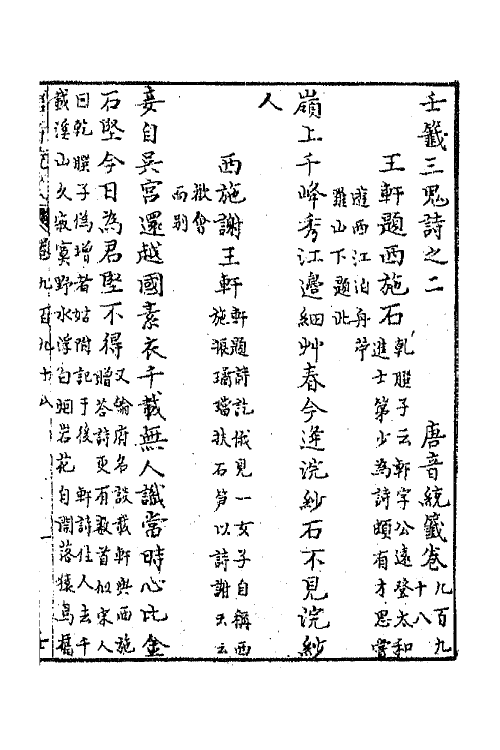 壬籤三鬼詩之二　唐音統籤卷九百九十八
王軒題西施石乾𦠆子云軒字公遠登太和進士第少為詩頗有才思嘗遊西江泊舟苧蘿山下題此
嶺上千峰秀江邊細艸春今逢浣紗石不見浣紗
人
西施謝王軒軒題詩訖俄見一女子自稱西施振璚璫扶石笋以詩謝云云歡會而别
妾自吳宮還越國素衣千載無人識當時心比金
石堅今日為君堅不得又翰府名談載軒與西施贈荅詩更有數首似宋人
曰乾𦠆子偽增者姑附記于後　軒詩佳人去千
載溪山久寂寞野水浮白廻岩花自開落猿鳥舊
卷九百九十八　一